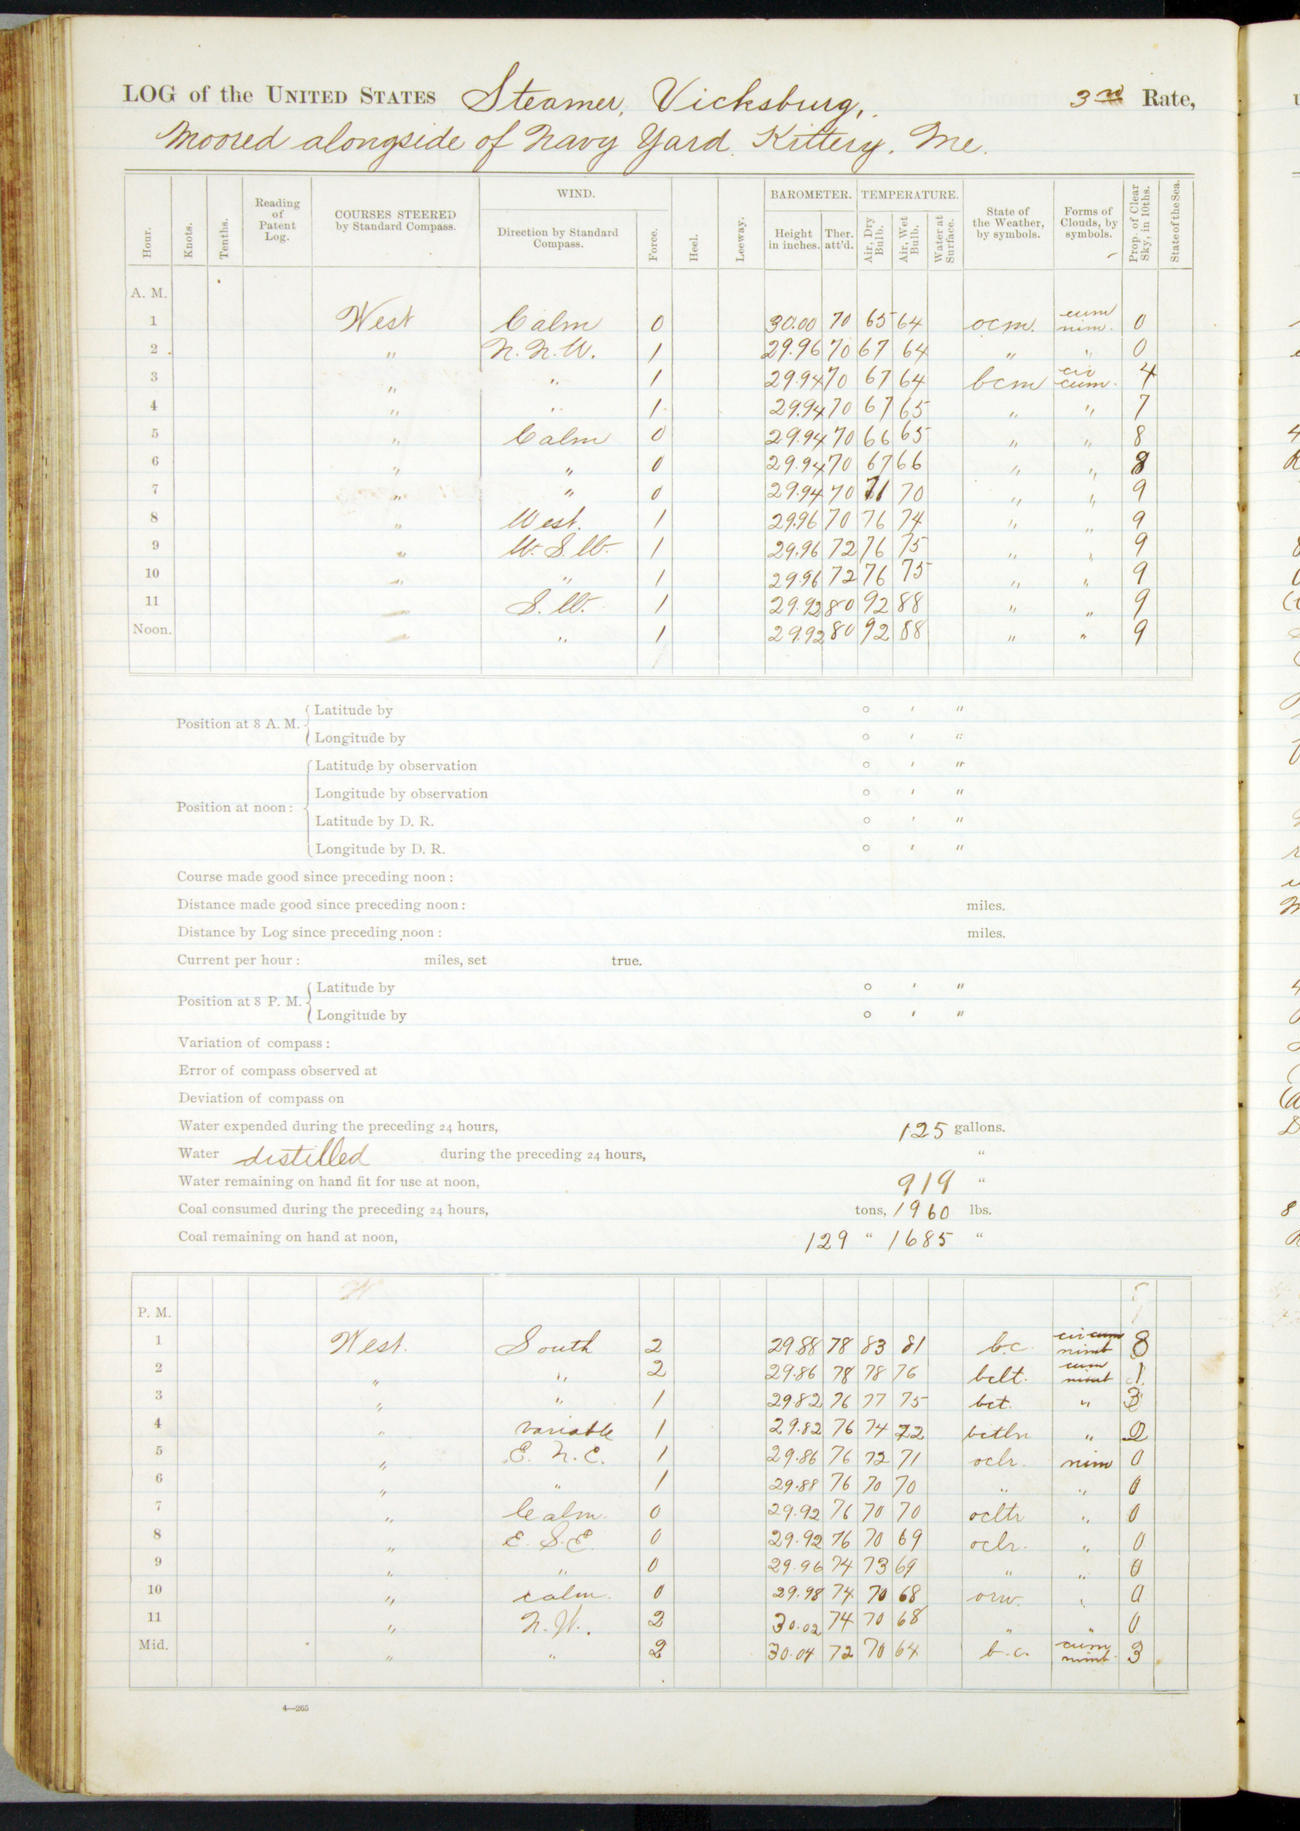 LOG of the UNITED STATES Steamer, Vicksburg, 3rd Rate,
Moored alongside of Navy Yard. Kittery. Me.
Hour. Knots. Tenths. Reading of Patent Log. COURSES STEERED by Standard Compass. WIND. Direction by Standard Compass. Force. Heel. Leeway. BAROMETER. Height in inches. Ther. att'd. TEMPERATURE. Air, Dry Bulb. Air, Wet Bulb. Water at Surface. State of the Weather, by symbols. Forms of Clouds, by symbols. Prop. of Clear Sky, in 10ths. State of the Sea.
A. M.
1 West Calm 0 30.00 70 65 64 ocm. cum nim. 0
2 " N. N. W. 1 29.96 70 67 64 " " 0
3 " " 1 29.94 70 67 64 bcm cir cum. 4
4 " " 1 29.94 70 67 65 " " 7
5 " Calm 0 29.94 70 66 65 " " 8
6 " " 0 29.94 70 67 66 " " 8
7 " " 0 29.94 70 71 70 " " 9
8 " West. 1 29.96 70 76 74 " " 9
9 " W. S. W. 1 29.96 72 76 75 " " 9
10 " " 1 29.96 72 76 75 " " 9
11 " S. W. 1 29.92 80 92 88 " " 9
Noon. " " 1 29.92 80 92 88 " " 9
Position at 8 A. M. Latitude by ° ' "
Longitude by ° ' "
Position at noon: Latitude by observation ° ' "
Longitude by observation ° ' "
Latitude by D. R. ° ' "
Longitude by D. R. ° ' "
Course made good since preceding noon:
Distance made good since preceding noon: miles.
Distance by Log since preceding noon: miles.
Current per hour: miles, set true.
Position at 8 P. M. Latitude by ° ' "
Longitude by ° ' "
Variation of compass:
Error of compass observed at
Deviation of compass on
Water expended during the preceding 24 hours, 125 gallons.
Water distilled during the preceding 24 hours, "
Water remaining on hand fit for use at noon, 919 "
Coal consumed during the preceding 24 hours, tons, 1960 lbs.
Coal remaining on hand at noon, 129 " 1685 "
P. M.
1 West. South 2 29.88 78 83 81 b.c. cir cum nimb 8
2 " " 2 29.86 78 78 76 bclt. cum nimb 1
3 " " 1 29.82 76 77 75 bct. " 3
4 " variable 1 29.82 76 74 72 "
5 " E. N. E. 1 29.86 76 72 71 oclr. nim 0
6 " " 1 29.88 76 70 70 " " 0
7 " Calm. 0 29.92 76 70 70 ocltr " 0
8 " E. S. E. 0 29.92 76 70 69 oclr. " 0
9 " " 0 29.96 74 73 69 " " 0
10 " calm. 0 29.98 74 70 68 orw. " 0
11 " N. W. 2 30.02 74 70 68 " " 0
Mid. " " 2 30.04 72 70 64 b.c. cum nimb. 3
4—265